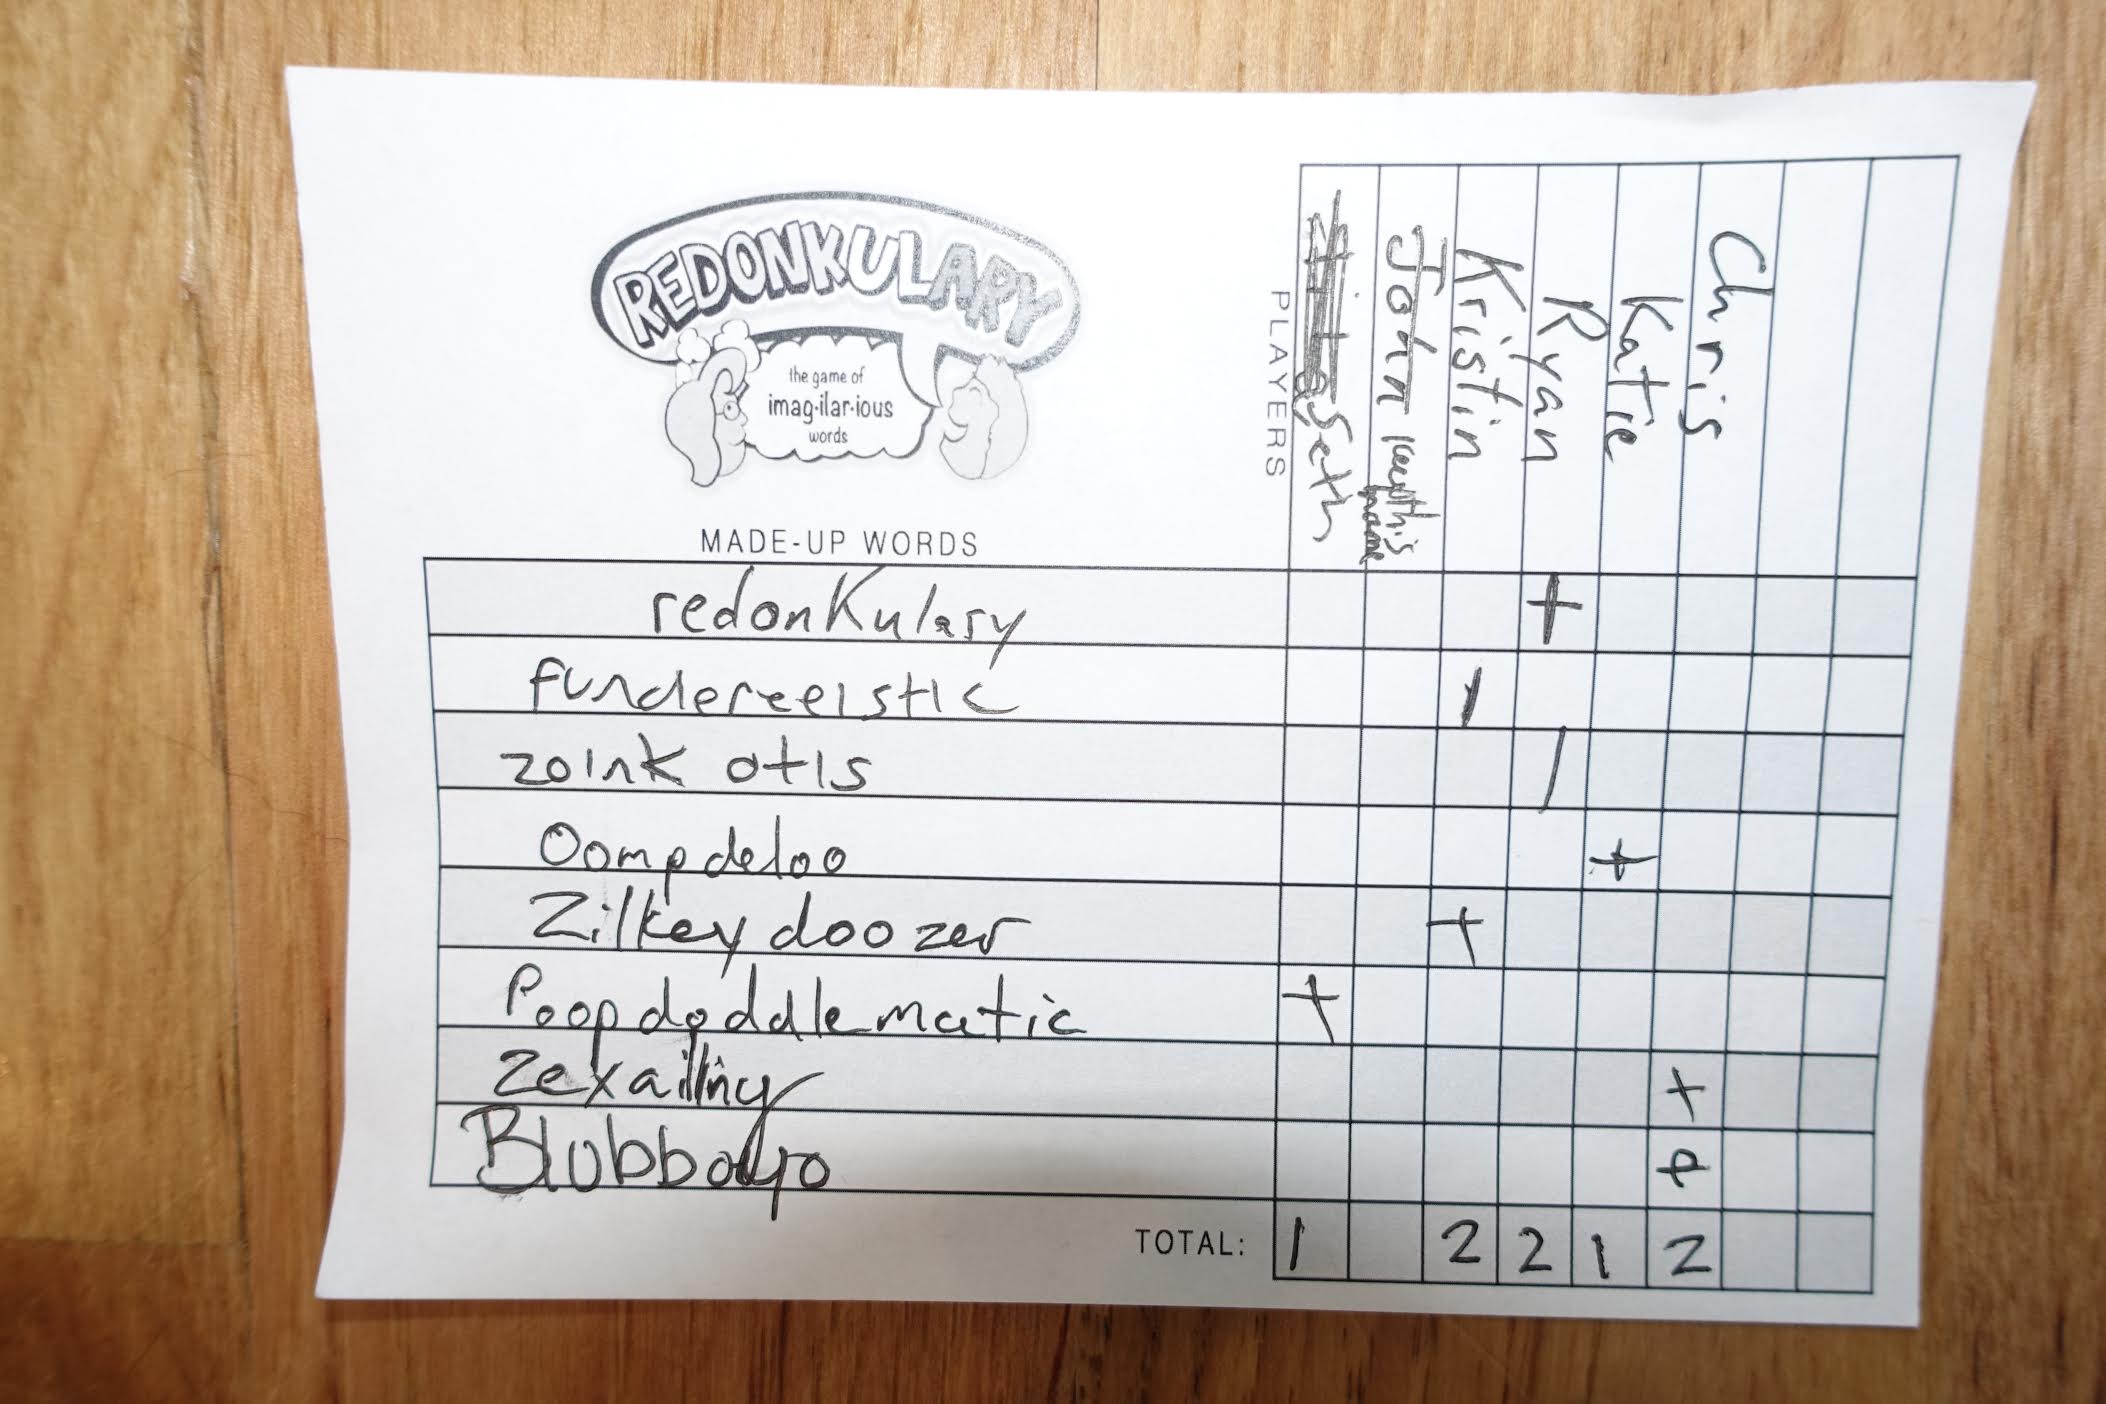 REDONKULARY
the game of
imag·ilar·ious
words
PLAYERS
Seth
John keep this name
Kristin
Ryan
Katie
Chris
MADE-UP WORDS
redonKulary +
fundereeistic 1
zoink otis /
Oompdeloo +
Zilkey doozer +
Poopdoddlematic +
Zexailing +
Blubboyo +
TOTAL: 1 2 2 1 2